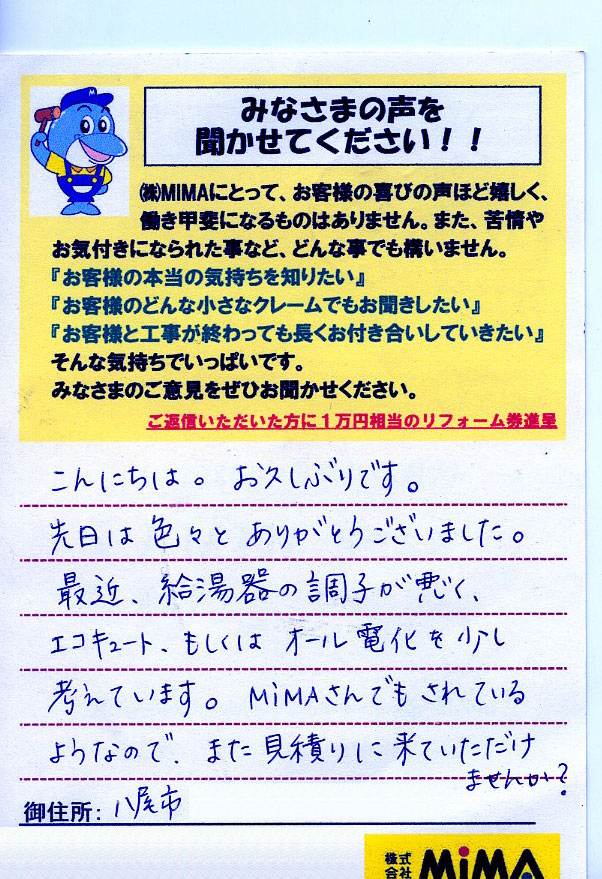 M
みなさまの声を
聞かせてください！！
㈱MIMAにとって、お客様の喜びの声ほど嬉しく、
働き甲斐になるものはありません。また、苦情や
お気付きになられた事など、どんな事でも構いません。
『お客様の本当の気持ちを知りたい』
『お客様のどんな小さなクレームでもお聞きしたい』
『お客様と工事が終わっても長くお付き合いしていきたい』
そんな気持ちでいっぱいです。
みなさまのご意見をぜひお聞かせください。
ご返信いただいた方に１万円相当のリフォーム券進呈
こんにちは。お久しぶりです。
先日は色々とありがとうございました。
最近、給湯器の調子が悪く、
エコキュート、もしくは オール電化を少し
考えています。MiMAさんでもされている
ようなので、また見積りに来ていただけ
ませんか？
御住所：八尾市
株式会社 MiMA